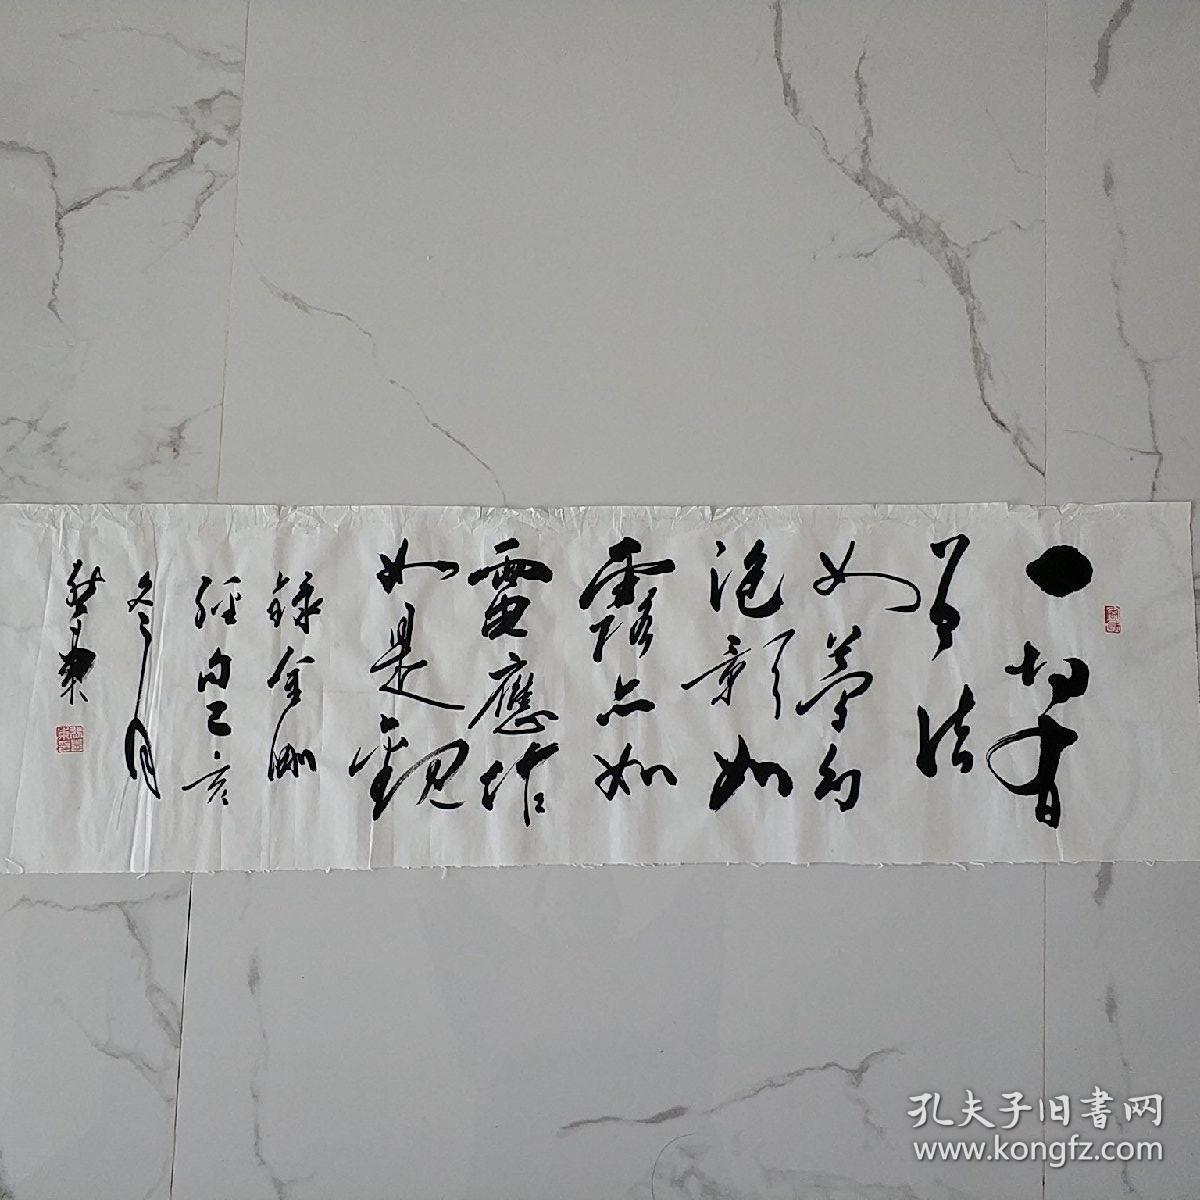 一切有
為法
如夢幻
泡影如
露亦如
電應作
如是觀
錄金剛
經句己亥
冬月
孔夫子旧書网
www.kongfz.com